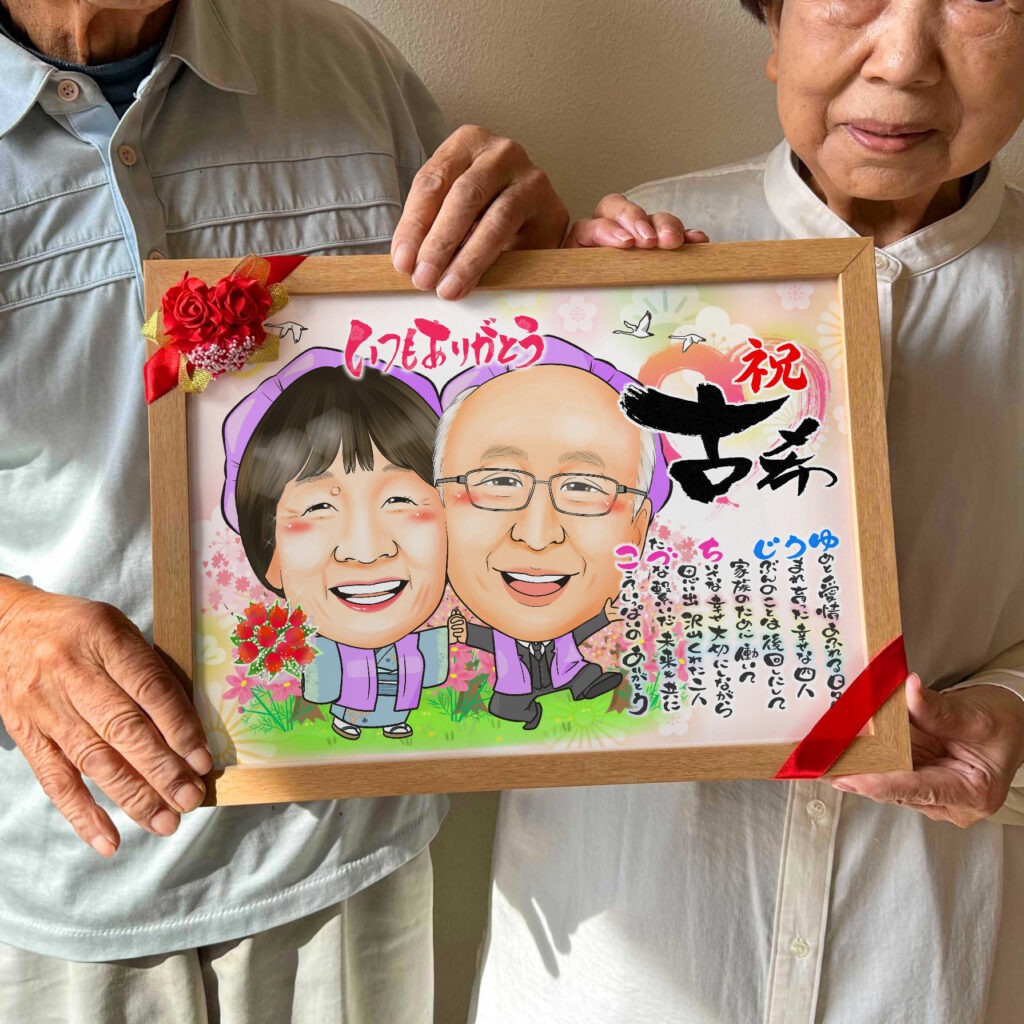 いつもありがとう
祝
古希
ゆめと愛情あふれる日
うまれ育った幸せな四人
じぶんのことは後回しにして
家族のために働いて
ちいさな幸せ大切にしながら
思い出沢山くれた二人
たづな繋いだ未来を共に
こころいっぱいのありがとう